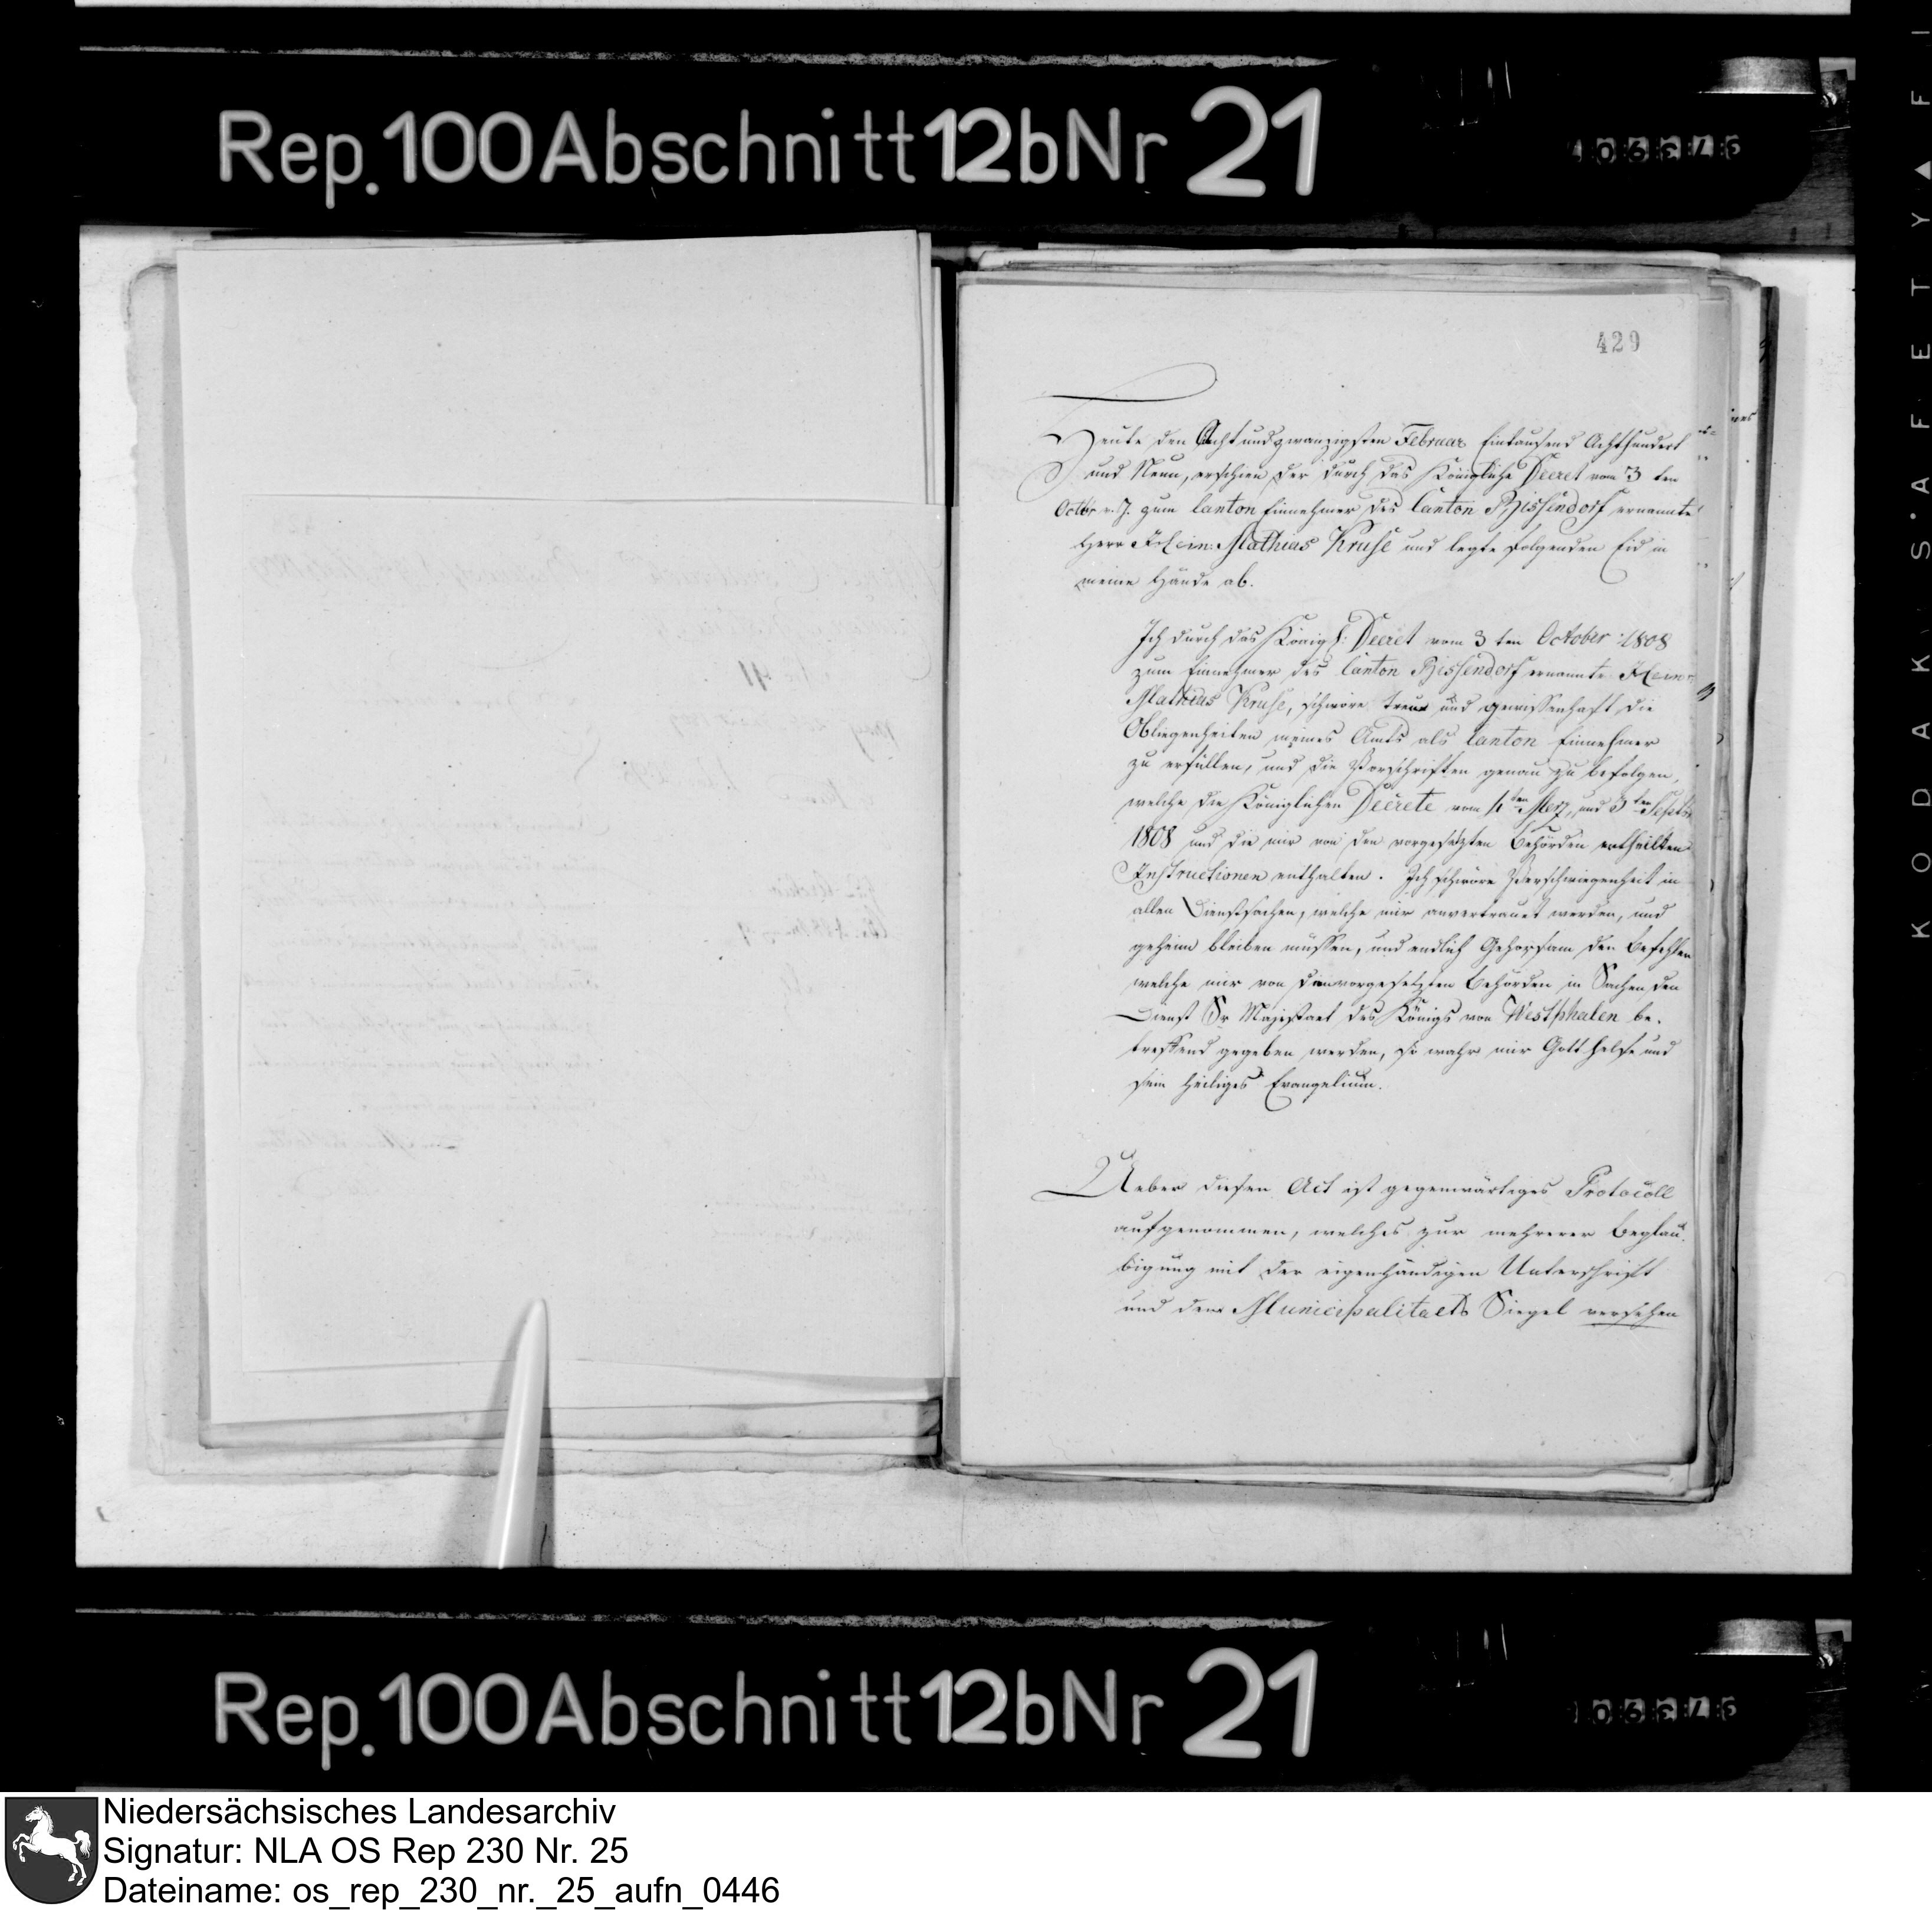 Rep. 100 Abschnitt 12b Nr 21
429
Heute den Achtundzwanzigsten Februar Eintausend Achthundert
und Neun, erschien der durch das Königliche Decret vom 3 ten
Octbr v. J. zum Canton Einnehmer des Canton Bissendorf ernannte
Herr Hein: Mathias Kruse und legte folgenden Eid in
meine Hände ab.
Ich durch das Königl: Decret vom 3 ten October 1808
zum Einnehmer des Canton Bissendorf ernannte Hein:
Mathias Kruse, schwöre treu und gewissenhaft die
Obliegenheiten meines Amts als Canton Einnehmer
zu erfüllen, und die Vorschriften genau zu befolgen,
welche die Königlichen Decrete vom ten Merz, und 3 ten Septb
1808 und die mir von den vorgesetzten Behörden ertheilten
Instructionen enthalten. Ich schwöre Verschwiegenheit in
allen Dienstsachen, welche mir anvertrauet werden, und
geheim bleiben müssen, und endlich Gehorsam den Befehlen
welche mir von den vorgesetzten Behörden in Sachen den
Dienst Sr Majestaet des Königs von Westphalen be-
treffend gegeben werden, so wahr mir Gott helfe und
sein heiliges Evangelium.
Ueber diesen Act ist gegenwärtiges Protocoll
aufgenommen, welches zur mehrerer Beglau-
bigung mit der eigenhändigen Unterschrift
und dem Municipalitaets Siegel versehen
Rep. 100 Abschnitt 12b Nr 21
KODAK SAFETY FI
Niedersächsisches Landesarchiv
Signatur: NLA OS Rep 230 Nr. 25
Dateiname: os_rep_230_nr._25_aufn_0446